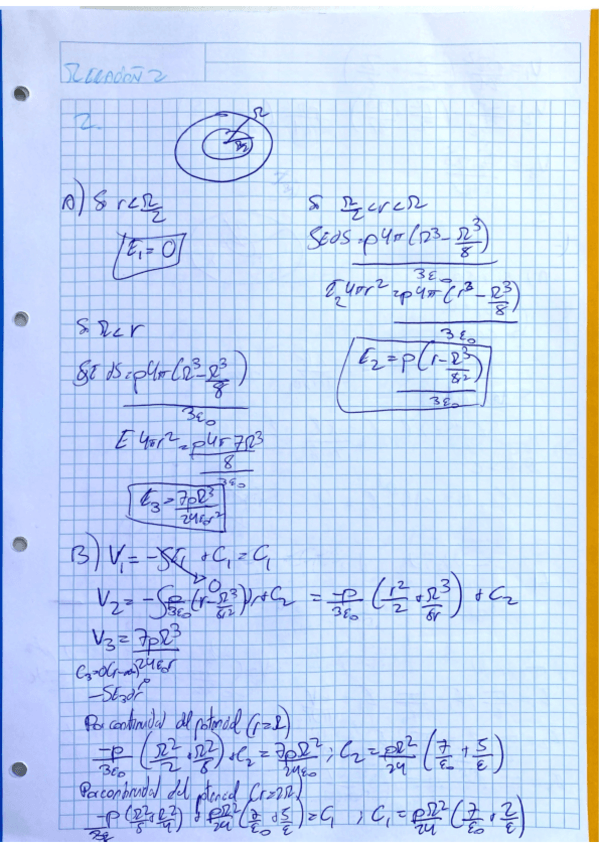 2.
R
R/2
A) Si r<R/2
E₁ = 0
Si R/2 <r<R
∮E ds = ρ4π(R³ - R³/8) / 3ε₀
E₂ 4πr² = ρ4π(r³ - R³/8) / 3ε₀
E₂ = ρ(r - R³/8r²) / 3ε₀
Si R<r
∮E ds = ρ4π(R³ - R³/8) / 3ε₀
E 4πr² = ρ4π 7R³/8 / 3ε₀
E₃ = 7ρR³ / 24ε₀r²
B) V₁ = -∫E₁ + C₁ = C₁
0
V₂ = -∫ρ/3ε₀ (r - R³/8r²) dr + C₂ = -ρ/3ε₀ (r²/2 + R³/8r) + C₂
V₃ = 7ρR³ / 24ε₀r
-∫E₃dr
Por continuidad del potencial (r=R)
-ρ/3ε₀ (R²/2 + R²/8) + C₂ = 7ρR²/24ε₀ ; C₂ = ρR²/24 (7/ε₀ + 5/ε)
Por continuidad del potencial
-ρ/3ε (R²/8 + R²/4) + ρR²/24 (7/ε₀ + 5/ε) = C₁ ; C₁ = ρR²/24 (7/ε₀ + 2/ε)